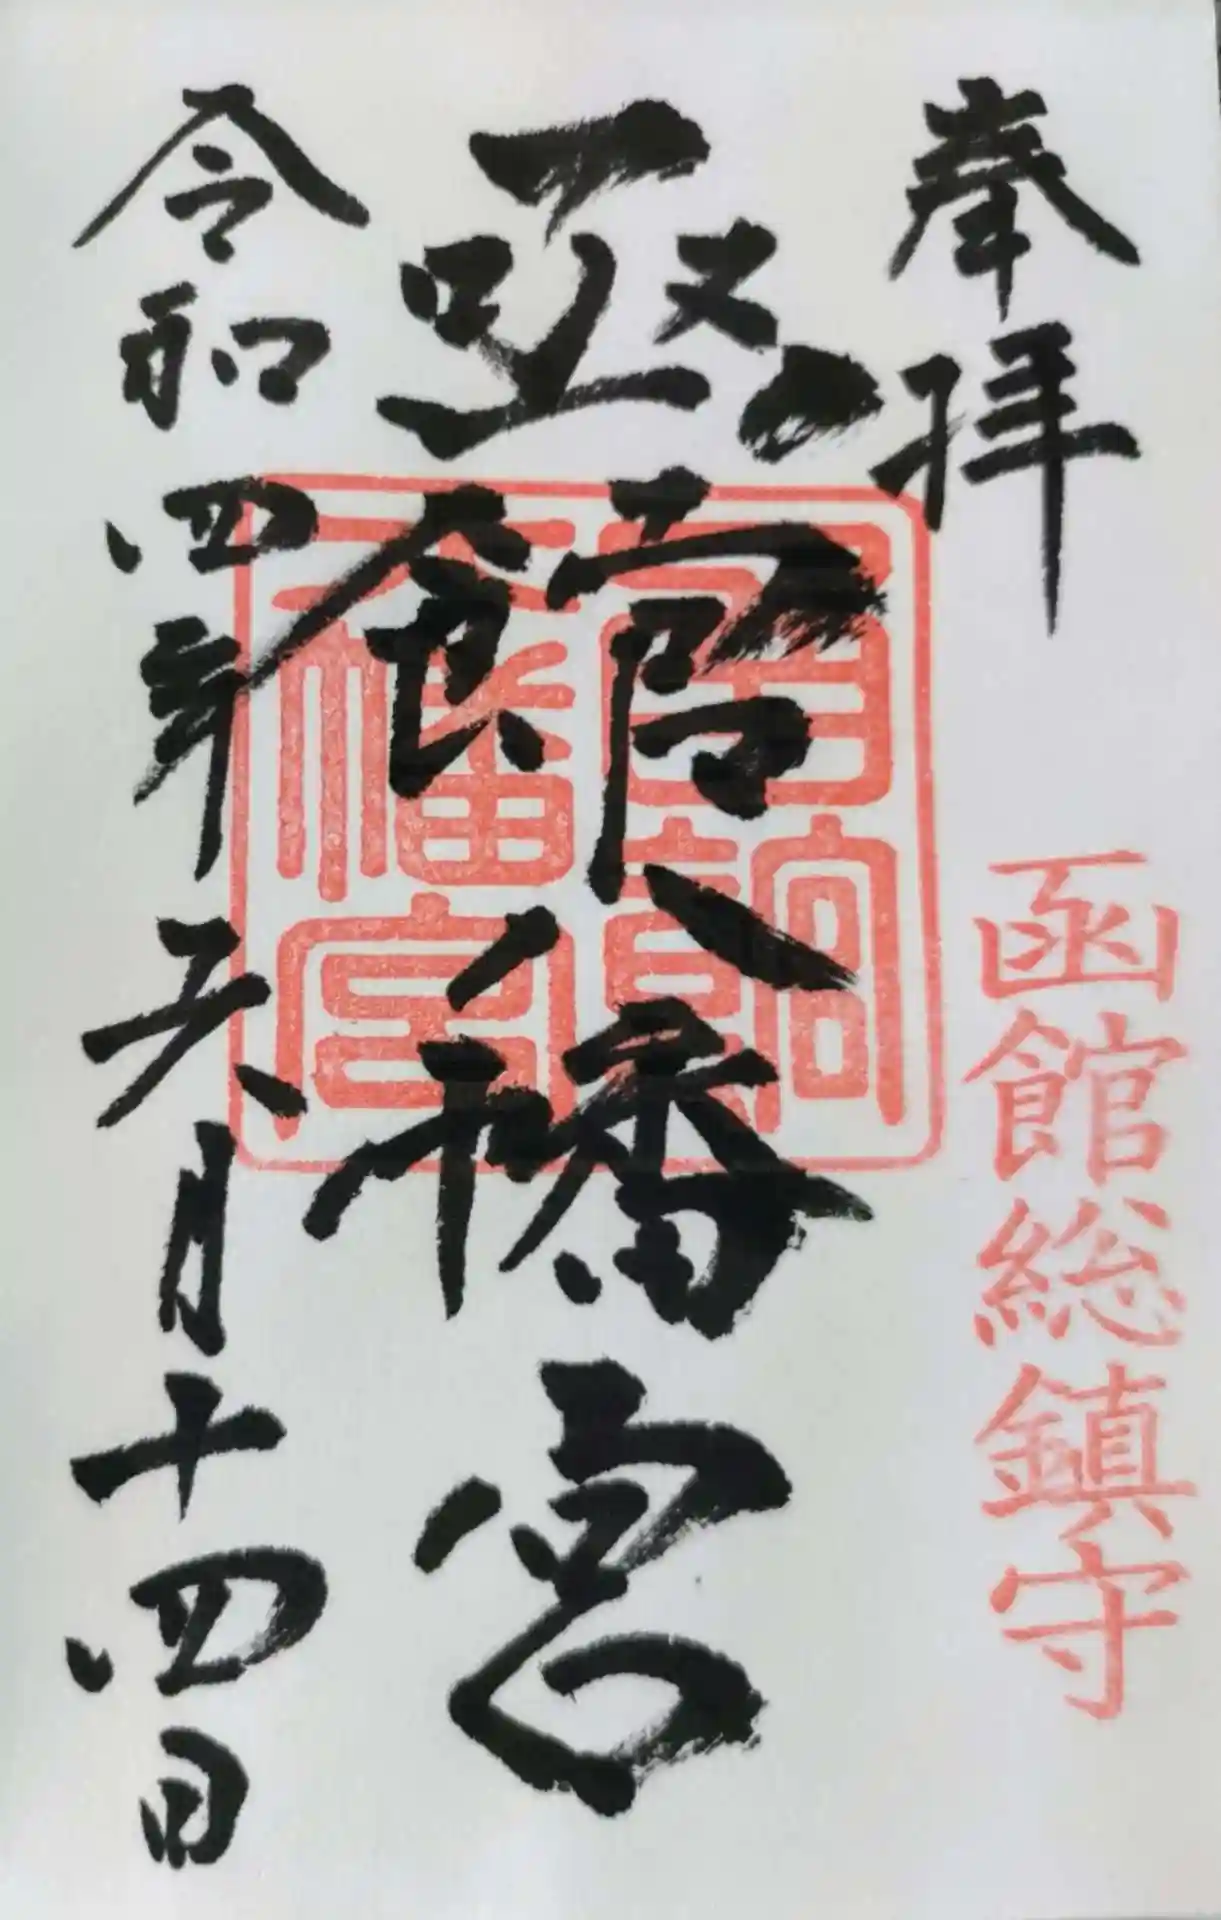 奉拝
函館総鎮守
函館八幡宮
令和四年六月十四日